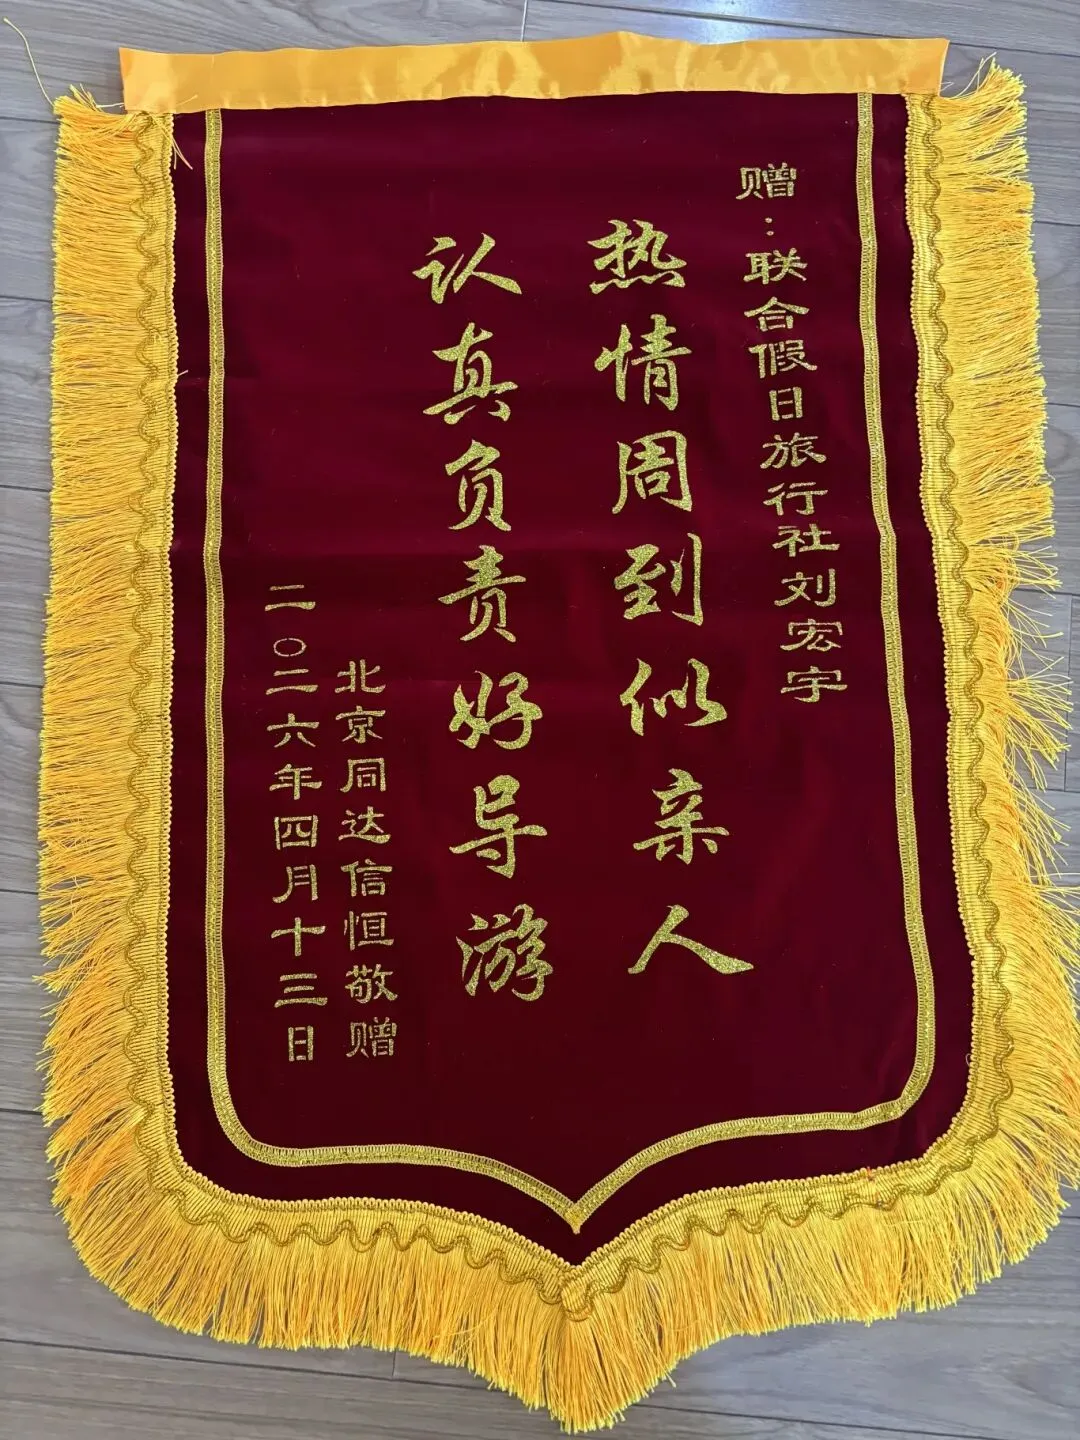 赠：联合假日旅行社刘宏宇
热情周到似亲人
认真负责好导游
北京同达信恒敬赠
二〇二六年四月十三日